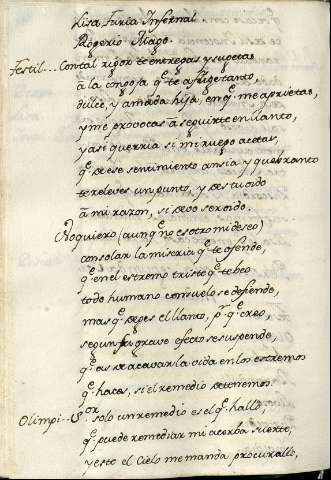 Lisa Furia Infernal
Rogerio Mago.
Festil... Con tal rigor te entregas y sugetas
a la congoja q.e te aflige tanto,
dulce, y amada hija, en q.e me aprietas,
y me provocas à seguirte en llanto,
y asi querria si mi ruego acetas,
q.e de ese sentimiento ansia y quebranto
te releves un punto, y des tu oido
a mi razon, si devo ser oido.
No quiero (aunq.e no es otro mi deseo)
consolar la miseria q.e te ofende,
q.e en el estremo triste q.e te veo
todo humano consuelo se defiende,
mas q.e dejes el llanto, p.r q.e creo,
segun su grave efecto se suspende,
q.e as de acavar la vida en los estremos
q.e haces, si el remedio no tenemos.
Olimpi.. S.or solo un remedio es el q.e hallo,
q.e puede remediar mi acerba suerte,
y este el Cielo me manda procurallo,